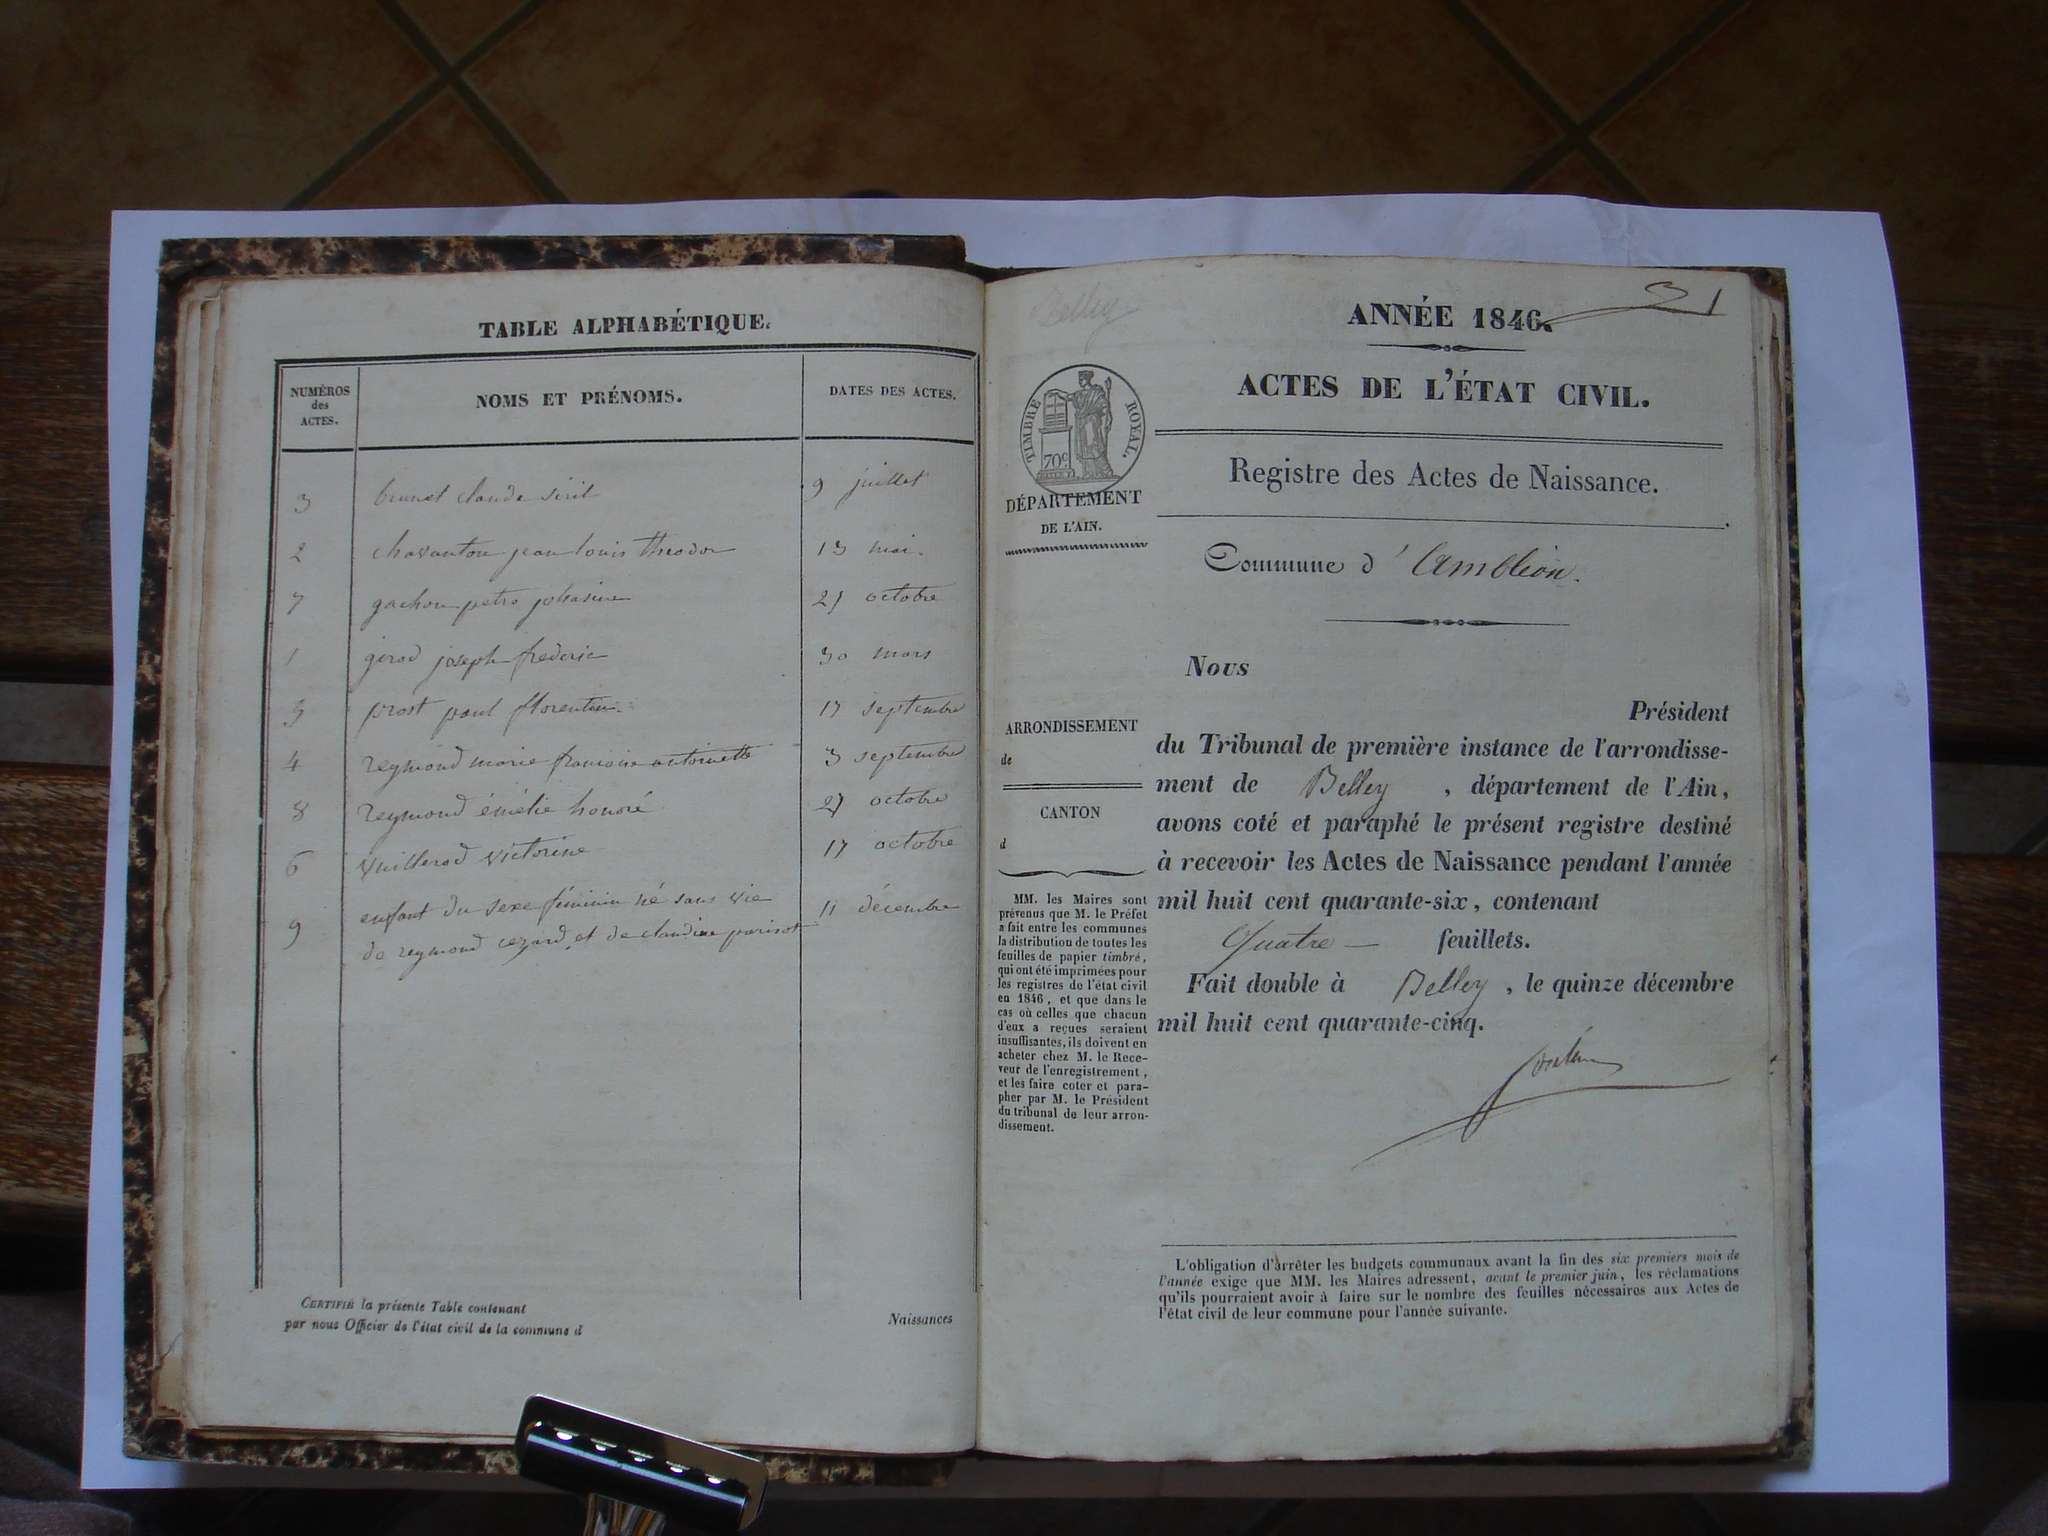 TABLE ALPHABÉTIQUE.
NUMÉROS
des
ACTES.
NOMS ET PRÉNOMS.
DATES DES ACTES.
3 brunet claude 9 juillet
2 jean louis theodor 13 mai.
7 gachon 21 octobre
1 girod joseph frederic 30 mars
5 prost paul florentin 17 septembre
4 reymond marie francoise antoinette 3 septembre
8 reymond émélie honoré 27 octobre
6 vuillerod victorine 17 octobre
9 enfant du sexe féminin né sans vie 11 décembre
de reymond cezard et de claudine parisot
CERTIFIÉ la présente Table contenant
Naissances
par nous Officier de l'état civil de la commune d
Belley
ANNÉE 1846.
1
ACTES DE L'ÉTAT CIVIL.
TIMBRE ROYAL.
70c
DÉPARTEMENT
DE L'AIN.
Registre des Actes de Naissance.
Commune d' Ambléon.
Nous
Président
du Tribunal de première instance de l'arrondisse-
ment de Belley , département de l'Ain,
avons coté et paraphé le présent registre destiné
à recevoir les Actes de Naissance pendant l'année
mil huit cent quarante-six, contenant
Quatre — feuillets.
Fait double à Belley , le quinze décembre
mil huit cent quarante-cinq.
ARRONDISSEMENT
de
CANTON
d
MM. les Maires sont
prévenus que M. le Préfet
a fait entre les communes
la distribution de toutes les
feuilles de papier timbré,
qui ont été imprimées pour
les registres de l'état civil
en 1846, et que dans le
cas où celles que chacun
d'eux a reçues seraient
insuffisantes, ils doivent en
acheter chez M. le Rece-
veur de l'enregistrement,
et les faire coter et para-
pher par M. le Président
du tribunal de leur arron-
dissement.
L'obligation d'arrêter les budgets communaux avant la fin des six premiers mois de
l'année exige que MM. les Maires adressent, avant le premier juin, les réclamations
qu'ils pourraient avoir à faire sur le nombre des feuilles nécessaires aux Actes de
l'état civil de leur commune pour l'année suivante.